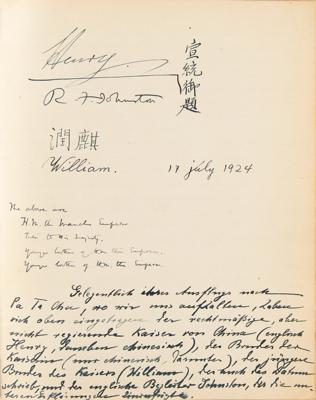 Henry.
宣統御題
R. F. Johnston
潤麒
William.
17 July 1924
The above are
H. M. A Manchu Emperor
Tutor to His Majesty.
Younger brother of H.M. the Empress.
Younger brother of H.M. the Emperor.
Gelegentlich eines Ausflugs nach
Pa Ta Chu, wo wir uns aufhielten, haben
sich oben eingetragen der rechtmäßige, aber
nicht regierende Kaiser von China (englisch
Henry, daneben chinesisch), der Bruder der
Kaiserin (nur chinesisch), der jüngere
Bruder des Kaisers (William), der auch das Datum
schrieb, und der englische Begleiter Johnston, der die